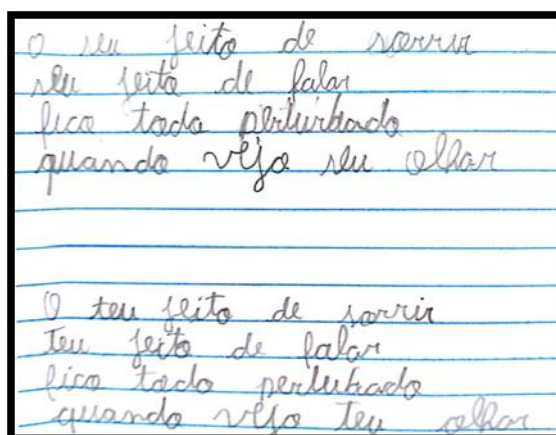 O seu jeito de sorrir
seu jeito de falar
fico todo perturbado
quando vejo seu olhar
O teu jeito de sorrir
teu jeito de falar
fico todo pertubado
quando vejo teu olhar